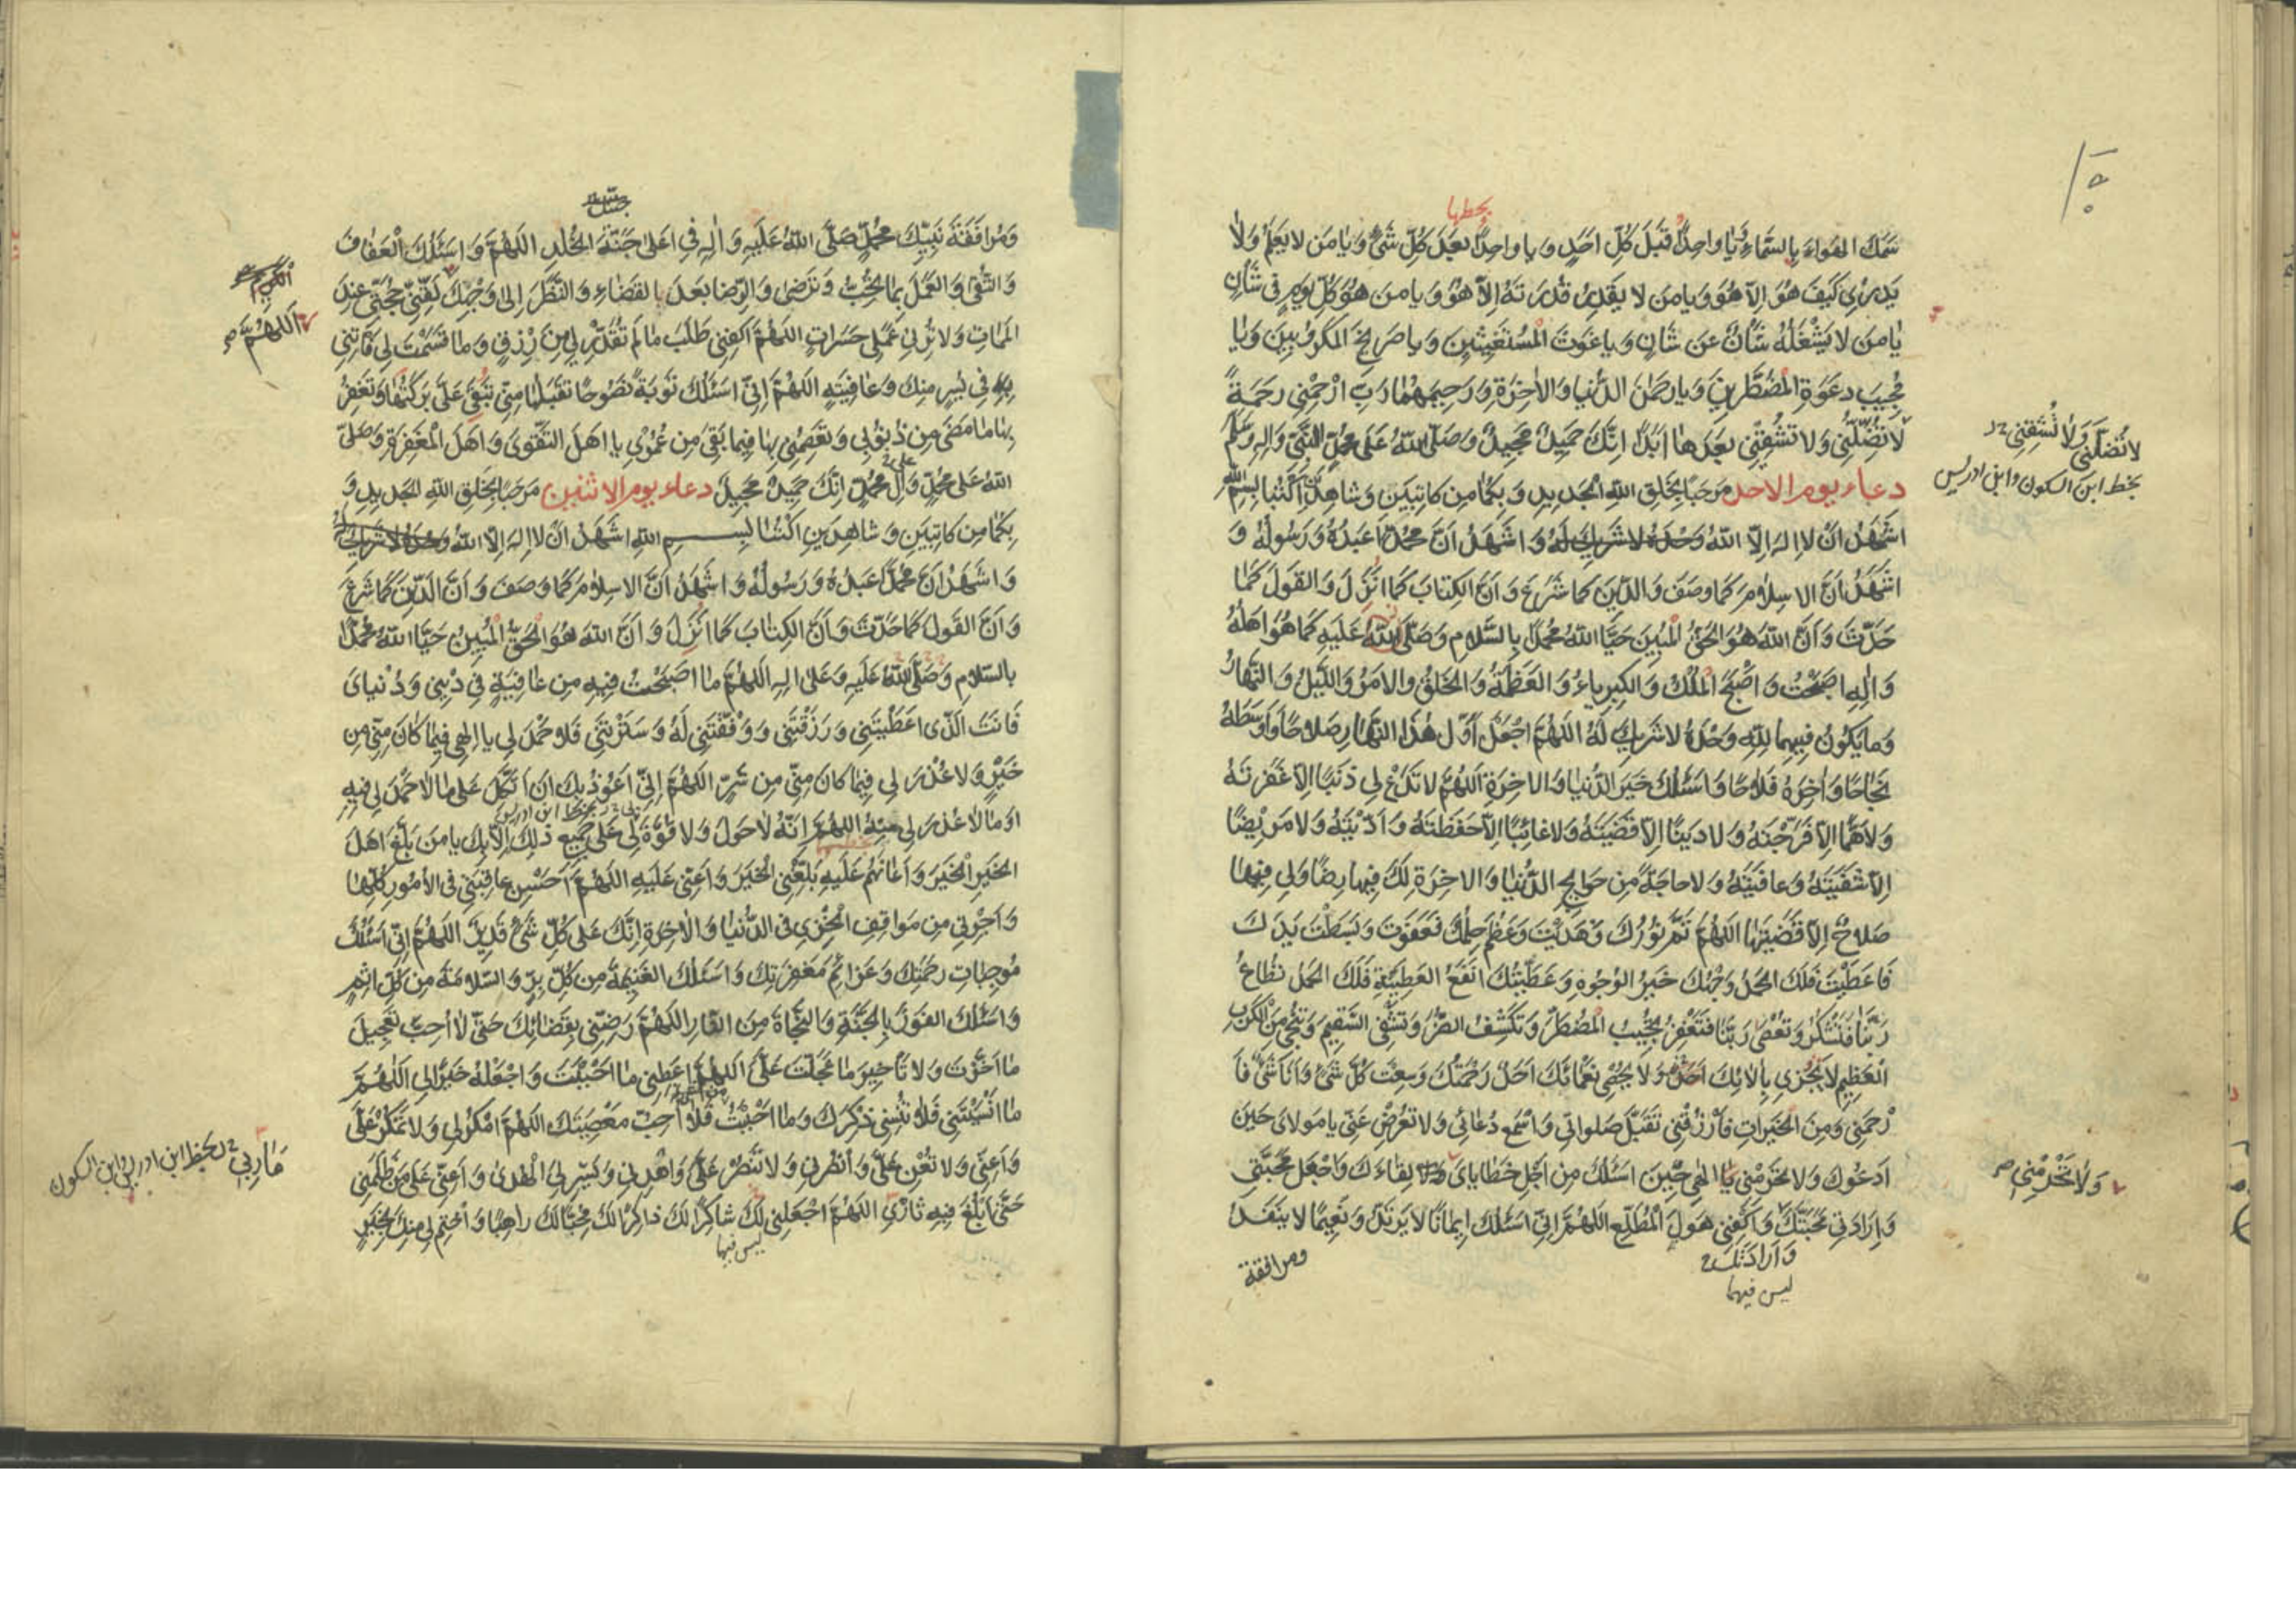 بخطها
سَمَكَ الهَواءَ بِالسَّمٰاءِ وَيٰا واحِدًا قَبْلَ كُلِّ اَحَدٍ وَيا واحِدًا بَعْدَ كُلِّ شَیْءٍ وَيٰا مَن لا يَعْلَمُ وَلاٰ
يَدْرٖى كَيْفَ هُوَ اِلاّ هُوَ وَيامَن لا يَقْدِرُ قُدْرَتَهُ اِلاّ هُوَ وَيا مَن هُوَ كُلَّ يَومٍ فى شَأنٍ
يٰا مَن لا يَشْغَلُهُ شَأنٌ عَن شَأنٍ وَيا غَوثَ المُسْتَغيثينَ وَيا صَريخَ المَكْرُوبينَ وَيٰا
مُجيبَ دَعْوَةِ المُضْطَرّينَ وَيا رَحمٰنَ الدُّنيا وَالاٰخِرَةِ وَرَحيمَهُمٰا رَبِّ ارْحَمْنى رَحمَةً
لاٰ تُضِلَّنى وَلا تُشْقِنى بَعْدَهٰا اَبَدًا اِنَّكَ حَميدٌ مَجيدٌ وَصَلَّى اللهُ عَلىٰ مُحَمَّدٍ النَّبِىِّ وَاٰلِهِ وَسَلَّمَ
دعاء يوم الاحد مَرحَبًا بِخَلْقِ اللهِ الجَديدِ وَبِكُمٰا مِن كاتِبَينِ وَشاهِدَينِ اكْتُبٰا بِسمِ اللهِ
اَشْهَدُ اَنْ لا اِلٰهَ اِلاَّ اللهُ وَحْدَهُ لا شَريكَ لَهُ وَاَشْهَدُ اَنَّ مُحَمَّدًا عَبدُهُ وَرَسُولُهُ وَ
اَشْهَدُ اَنَّ الاِسلاٰمَ كَمٰا وَصَفَ وَالدّينَ كَما شَرَعَ وَاَنَّ الكِتابَ كَمٰا اَنْزَلَ وَالقَولَ كَمٰا
حَدَّثَ وَاَنَّ اللهَ هُوَ الحَقُّ المُبينُ حَيَّا اللهُ مُحَمَّدًا بِالسَّلامِ وَصَلَّى اللهُ عَلَيهِ كَمٰا هُوَ اَهلُهُ
وَاٰلِهِ اَصْبَحْتُ وَاَصْبَحَ المُلْكُ وَالكِبرِياءُ وَالعَظَمَةُ وَالخَلْقُ وَالاَمرُ وَاللَّيلُ وَالنَّهارُ
وَما يَكُونُ فيهِما لِلّٰهِ وَحْدَهُ لا شَريكَ لَهُ اللّهُمَّ اجْعَلْ اَوَّلَ هٰذَا النَّهارِ صَلاٰحًا وَاَوسَطَهُ
نَجاحًا وَاٰخِرَهُ فَلاٰحًا وَاَسْئَلُكَ خَيرَ الدُّنيا وَالاٰخِرَةِ اَللّهُمَّ لا تَدَعْ لى ذَنبًا اِلاّ غَفَرتَهُ
وَلا هَمًّا اِلاّ فَرَّجْتَهُ وَلا دَينًا اِلاّ قَضَيتَهُ وَلا غائِبًا اِلاّ حَفَظتَهُ وَاَدَّيتَهُ وَلا مَريضًا
اِلاّ شَفَيتَهُ وَعافَيتَهُ وَلا حاجَةً مِن حَوايِجِ الدُّنيا وَالاٰخِرَةِ لَكَ فيها رِضًا وَلى فيهٰا
صَلاحٌ اِلاّ قَضَيتَهٰا اللّهُمَّ تَمَّ نُورُكَ فَهَدَيْتَ وَعَظُمَ حِلمُكَ فَعَفَوتَ وَبَسَطْتَ يَدَكَ
فَاَعطَيْتَ فَلَكَ الحَمدُ وَجْهُكَ خَيرُ الوُجُوهِ وَعَطِيَّتُكَ اَنْفَعُ العَطِيَّةِ فَلَكَ الحَمدُ تُطاعُ
رَبَّنٰا فَتَشْكُرُ وَتُعْصىٰ رَبَّنٰا فَتَغْفِرُ تُجيبُ المُضْطَرَّ وَتَكْشِفُ الضُّرَّ وَتَشْفِى السَّقيمَ وَتُنْجى مِنَ الكَرْبِ
العَظيمِ لاٰ يَجْزى بِاٰلائِكَ اَحَدٌ وَلا يُحْصى نَعْمٰائَكَ اَحَدٌ رَحْمَتُكَ وَسِعَتْ كُلَّ شَیْءٍ وَاَنَا شَیْءٌ فَا
رْحَمنى وَمِنَ الخَيراتِ فَارْزُقْنى تَقَبَّلْ صَلَواتى وَاسْمَعْ دُعائى وَلا تُعْرِضْ عَنّى يا مَولاىَ حينَ
اَدعُوكَ وَلا تَحْرِمْنى يٰا اِلٰهى حينَ اَسْئَلُكَ مِن اَجْلِ خَطاياىَ لِقاءَكَ وَاجْعَلْ مَحَبَّتى
وَاِرادَتى مَحَبَّتَكَ وَاكْفِنى هَولَ المُطَّلَعِ اللّهُمَّ اِنّى اَسْئَلُكَ ايمانًا لا يَرْتَدُّ وَنَعيمًا لا يَنْفَدُ
وَاِرادَتَكَ
ليس فيهما
ومرافقة
لا تُضلّنى وَلاٰ تُشقِنى
بخط ابن السكون وابن ادريس
وَلاٰ تَحْرِمْنى
وَمُرافَقَةَ نَبِيِّكَ مُحَمَّدٍ صَلَّى اللهُ عَلَيهِ وَاٰلِهِ فى اَعلىٰ جَنَّةِ الخُلدِ اللّهُمَّ وَاَسْئَلُكَ العَفافَ
وَالتُّقىٰ وَالعَمَلَ بِمٰا تُحِبُّ وَتَرضىٰ وَالرِّضا بَعدَ القَضاءِ وَالنَّظَرَ اِلىٰ وَجْهِكَ لَقِّنّى حُجَّتى عِندَ
المَمٰاتِ وَلا تُرِنى عَمَلى حَسَراتٍ اللّهُمَّ اكْفِنى طَلَبَ مٰا لَم تُقَدِّرْ لى مِن رِزقٍ وَما قَسَمْتَ لى فَأتِنى
بِهِ فى يُسْرٍ مِنكَ وَعافِيَةٍ اللّهُمَّ اِنّى اَسْئَلُكَ تَوبَةً نَصُوحًا تَقَبَّلُهٰا مِنّى تُبْقى عَلَىَّ بَرَكَتَهٰا وَتَغْفِرُ
بِهٰا مٰا مَضىٰ مِن ذُنُوبى وَتَعصِمُنى بِهٰا فيما بَقِىَ مِن عُمْرى يا اَهلَ التَّقوىٰ وَاَهلَ المَغفِرَةِ وَصَلَّى
اللهُ عَلى مُحَمَّدٍ وَاٰلِ مُحَمَّدٍ اِنَّكَ حَميدٌ مَجيدٌ دعاء يوم الاثنين مَرحَبًا بِخَلْقِ اللهِ الجَديدِ وَ
بِكُمٰا مِن كاتِبَينِ وَشاهِدَينِ اكْتُبٰا بِسمِ اللهِ اَشْهَدُ اَنْ لا اِلٰهَ اِلاَّ اللهُ وَحْدَهُ لا شَريكَ لَهُ
وَاَشْهَدُ اَنَّ مُحَمَّدًا عَبدُهُ وَرَسُولُهُ وَاَشْهَدُ اَنَّ الاِسلاٰمَ كَمٰا وَصَفَ وَاَنَّ الدّينَ كَمٰا شَرَعَ
وَاَنَّ القَولَ كَمٰا حَدَّثَ وَاَنَّ الكِتٰابَ كَمٰا اَنْزَلَ وَاَنَّ اللهَ هُوَ الحَقُّ المُبينُ حَيَّا اللهُ مُحَمَّدًا
بِالسَّلامِ وَصَلَّى اللهُ عَلَيهِ وَعَلىٰ اٰلِهِ اَللّهُمَّ مٰا اَصْبَحْتُ فيهِ مِن عافِيَةٍ فى دينى وَدُنياىَ
فَاَنتَ الَّذى اَعطَيتَنى وَرَزَقْتَنى وَوَفَّقْتَنى لَهُ وَسَتَرتَنى فَلا حَمْدَ لى يا اِلٰهى فيمٰا كٰانَ مِنّى مِن
خَيرٍ وَلا عُذْرَ لى فيمٰا كانَ مِنّى مِن شَرٍّ اللّهُمَّ اِنّى اَعُوذُ بِكَ اَنْ اَتَّكِلَ عَلى مٰا لاٰ حَمْدَ لى فيهِ
اَو مٰا لاٰ عُذْرَ لى اللّهُمَّ اِنَّهُ لاٰ حَولَ وَلا قُوَّةَ لى عَلى جَميعِ ذٰلِكَ اِلاّ بِكَ يا مَن بَلَّغَ اَهلَ
الخَيرِ الخَيرَ وَاَعانَهُم عَلَيهِ بَلِّغْنى الخَيرَ وَاَعِنّى عَلَيهِ اللّهُمَّ اَحسِن عافِيَتى فى الاُمُورِ كُلِّهٰا
وَاَجِرْنى مِن مَواقِفِ الخِزْىِ فى الدُّنيا وَالاٰخِرَةِ اِنَّكَ عَلىٰ كُلِّ شَیْءٍ قَديرٌ اللّهُمَّ اِنّى اَسْئَلُكَ
مُوجِباتِ رَحمَتِكَ وَعَزائِمَ مَغفِرَتِكَ وَاَسْئَلُكَ الغَنيمَةَ مِن كُلِّ بِرٍّ وَالسَّلامَةَ مِن كُلِّ اِثمٍ
وَاَسْئَلُكَ الفَوزَ بِالجَنَّةِ وَالنَّجاةَ مِنَ النّارِ اللّهُمَّ رَضِّنى بِقَضٰائِكَ حَتّىٰ لاٰ اُحِبَّ تَعْجيلَ
مٰا اَخَّرتَ وَلا تَأخيرَ مٰا عَجَّلْتَ عَلَىَّ اللّهُمَّ اَعطِنى مٰا اَحبَبْتَ وَاجْعَلْهُ خَيرًا لى اَللّهُمَّ
مٰا اَنْسَيْتَنى فَلا تُنْسِنى ذِكْرَكَ وَمٰا اَحبَبْتُ فَلا اُحِبُّ مَعْصِيَتَكَ اللّهُمَّ امْكُرْ لى وَلا تَمْكُرْ عَلَىَّ
وَاَعِنّى وَلا تُعِنْ عَلَىَّ وَانْصُرنى وَلا تَنْصُرْ عَلَىَّ وَاهْدِنى وَيَسِّرْ لِىَ الهُدىٰ وَاَعِنّى عَلىٰ مَن ظَلَمَنى
حَتّىٰ اَبلُغَ فيهِ ثَارى اللّهُمَّ اجْعَلنى لَكَ شاكِرًا لَكَ ذاكِرًا لَكَ مُحِبًّا لَكَ راهِبًا وَاخْتِم لى مِنكَ بِخَيرٍ
ليس فيها
اَللّهُمَّ
مَاٰرِبى بخط ابن ادريس وابن السكون